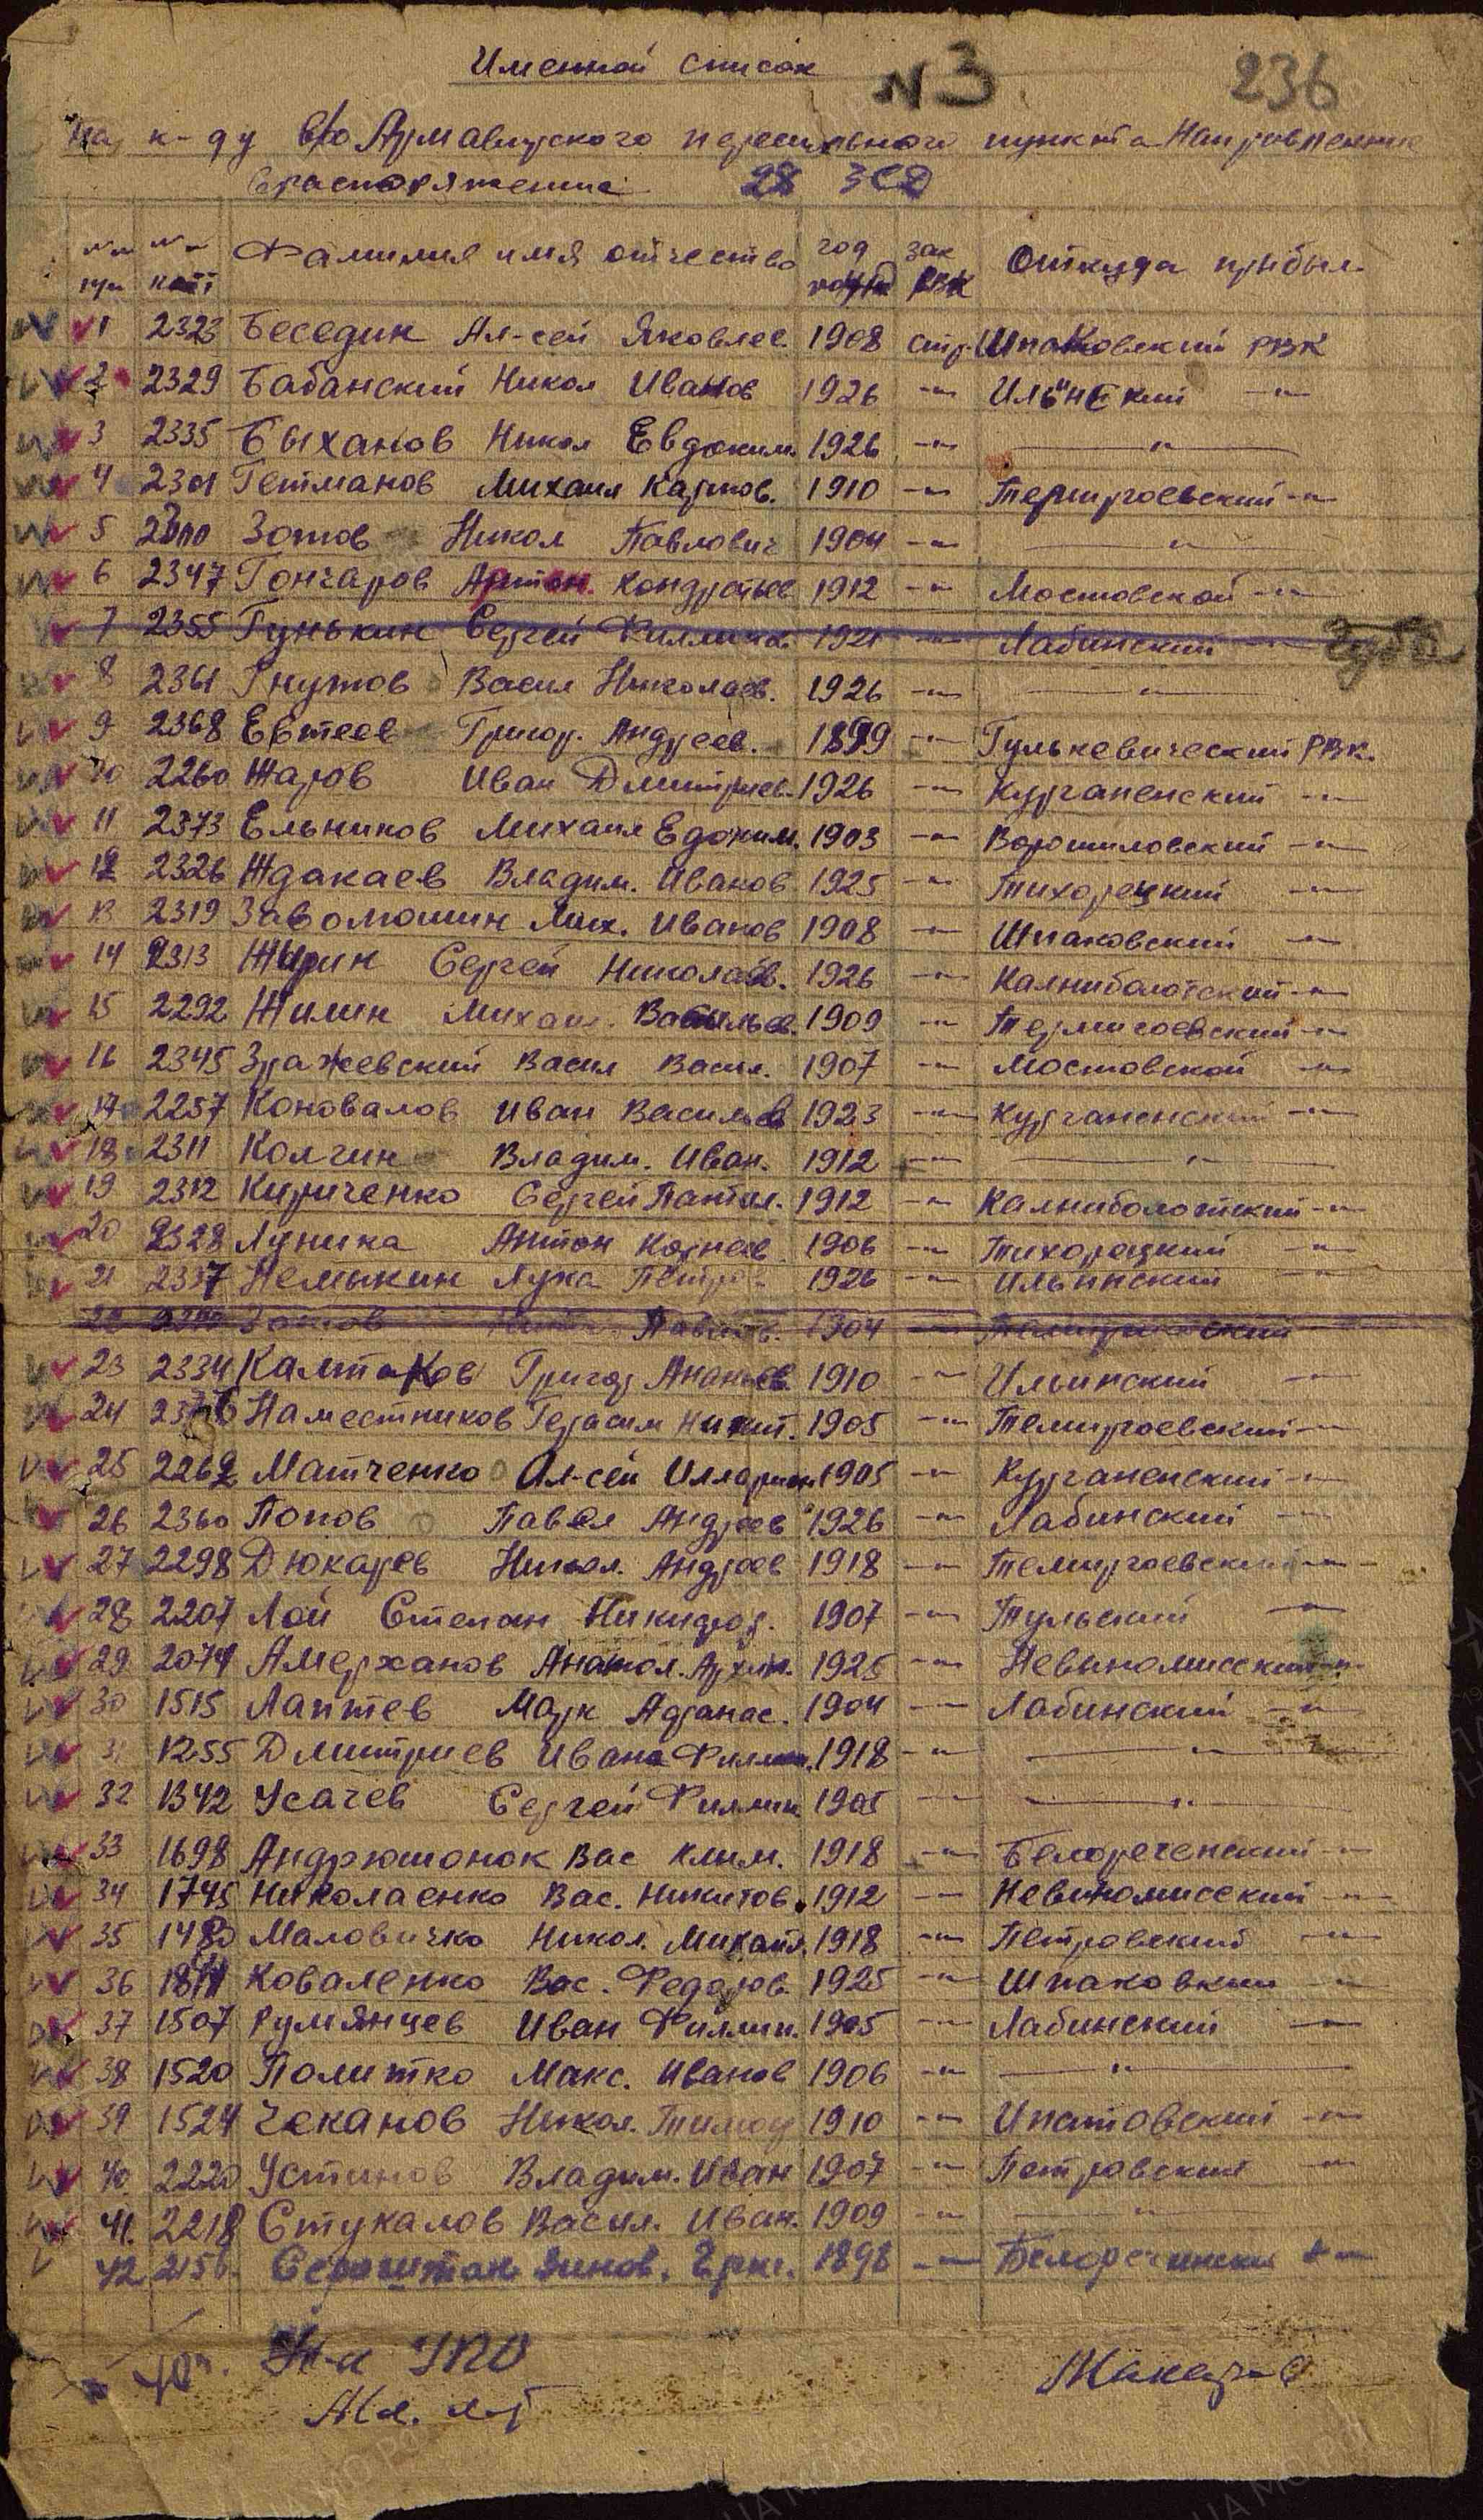 Именной список
№3
236
На к-ду в/о Армавирского пересыльного пункта Направление
в распоряжение 28 ЗСД
Фамилия имя отчество год зак РВК Откуда прибыл
1 2323 Беседин Ал-сей Яковлев. 1908 стр. Шпаковский РВК
2 2329 Бабанский Никол Иванов 1926 -"- Ильинский -"-
3 2335 Быханов Никол Евдоким. 1926 -"- -"-
4 2301 Гетманов Михаил Карпов. 1910 -"- Темиргоевский -"-
5 2300 Зотов Никол Павлович 1904 -"- -"-
6 2347 Гончаров Антон. Кондратьев 1912 -"- Мостовской -"-
7 2355 Гунькин Сергей Филлип. 1921 -"- Лабинский -"-
8 2361 Гнутов Васил Николаев. 1926 -"- -"-
9 2368 Евтеев Григор. Андреев. 1899 -"- Гулькевический РВК.
10 2260 Жаров Иван Дмитриев. 1926 -"- Курганенский -"-
11 2373 Ельников Михаил Едоким. 1903 -"- Ворошиловский -"-
12 2326 Ждакаев Владим. Иванов 1925 -"- Тихорецкий -"-
13 2319 Заволошин Мих. Иванов 1908 -"- Шпаковский -"-
14 2313 Жирин Сергей Николаев. 1926 -"- Калниболотский -"-
15 2292 Жилин Михаил. Васильев. 1909 -"- Темиргоевский -"-
16 2345 Зражевский Васил Васил. 1907 -"- Мостовской -"-
17 2257 Коновалов Иван Васильев 1923 -"- Курганенский -"-
18 2311 Колгин Владим. Иван. 1912 -"- -"-
19 2312 Кириченко Сергей Пантел. 1912 -"- Калниболотский -"-
20 2328 Лунина Антон Корнеев 1906 -"- Тихорецкий -"-
21 2337 Немыкин Лука Петров 1926 -"- Ильинский -"-
22 Зотов Павлов. 1904 -"- Темиргоевский
23 2334 Калтаков Григор Ананьев. 1910 -"- Ильинский -"-
24 Наместников Герасим Никит. 1905 -"- Темиргоевский -"-
25 2262 Матченко Ал-сей Илларион 1905 -"- Курганенский -"-
26 2360 Попов Павел Андреев 1926 -"- Лабинский -"-
27 2298 Дюкарев Никол. Андреев 1918 -"- Темиргоевский -"-
28 2207 Лой Степан Никифор. 1907 -"- Тульский -"-
29 2074 Амерханов Анатол. Архип. 1926 -"- Невиномисский -"-
30 1515 Лаптев Марк Афанас. 1904 -"- Лабинский -"-
31 1255 Дмитриев Ивана Филлип. 1918 -"- -"-
32 1342 Усачев Сергей Филлип 1905 -"- -"-
33 1698 Андрюшонок Вас Клим. 1918 -"- Белореченский -"-
34 1745 Николаенко Вас. Никитов. 1912 -"- Невиномисский -"-
35 1480 Маловичко Никол. Михайл. 1918 -"- Петровский -"-
36 Коваленко Вас. Федоров. 1925 -"- Шпаковкий -"-
37 1507 Румянцев Иван Филлип. 1905 -"- Лабинский -"-
38 1520 Политко Макс. Иванов 1906 -"- -"-
39 1524 Чеканов Никол. Тимоф 1910 -"- Ипатовский -"-
40 2220 Устинов Владим. Иван 1907 -"- Петровский -"-
41. 2218 Стукалов Васил. Иван. 1909 -"- -"-
42 2156 Зинов. 1898 -"- Белоречински -"-
УПО
Мл. л-т